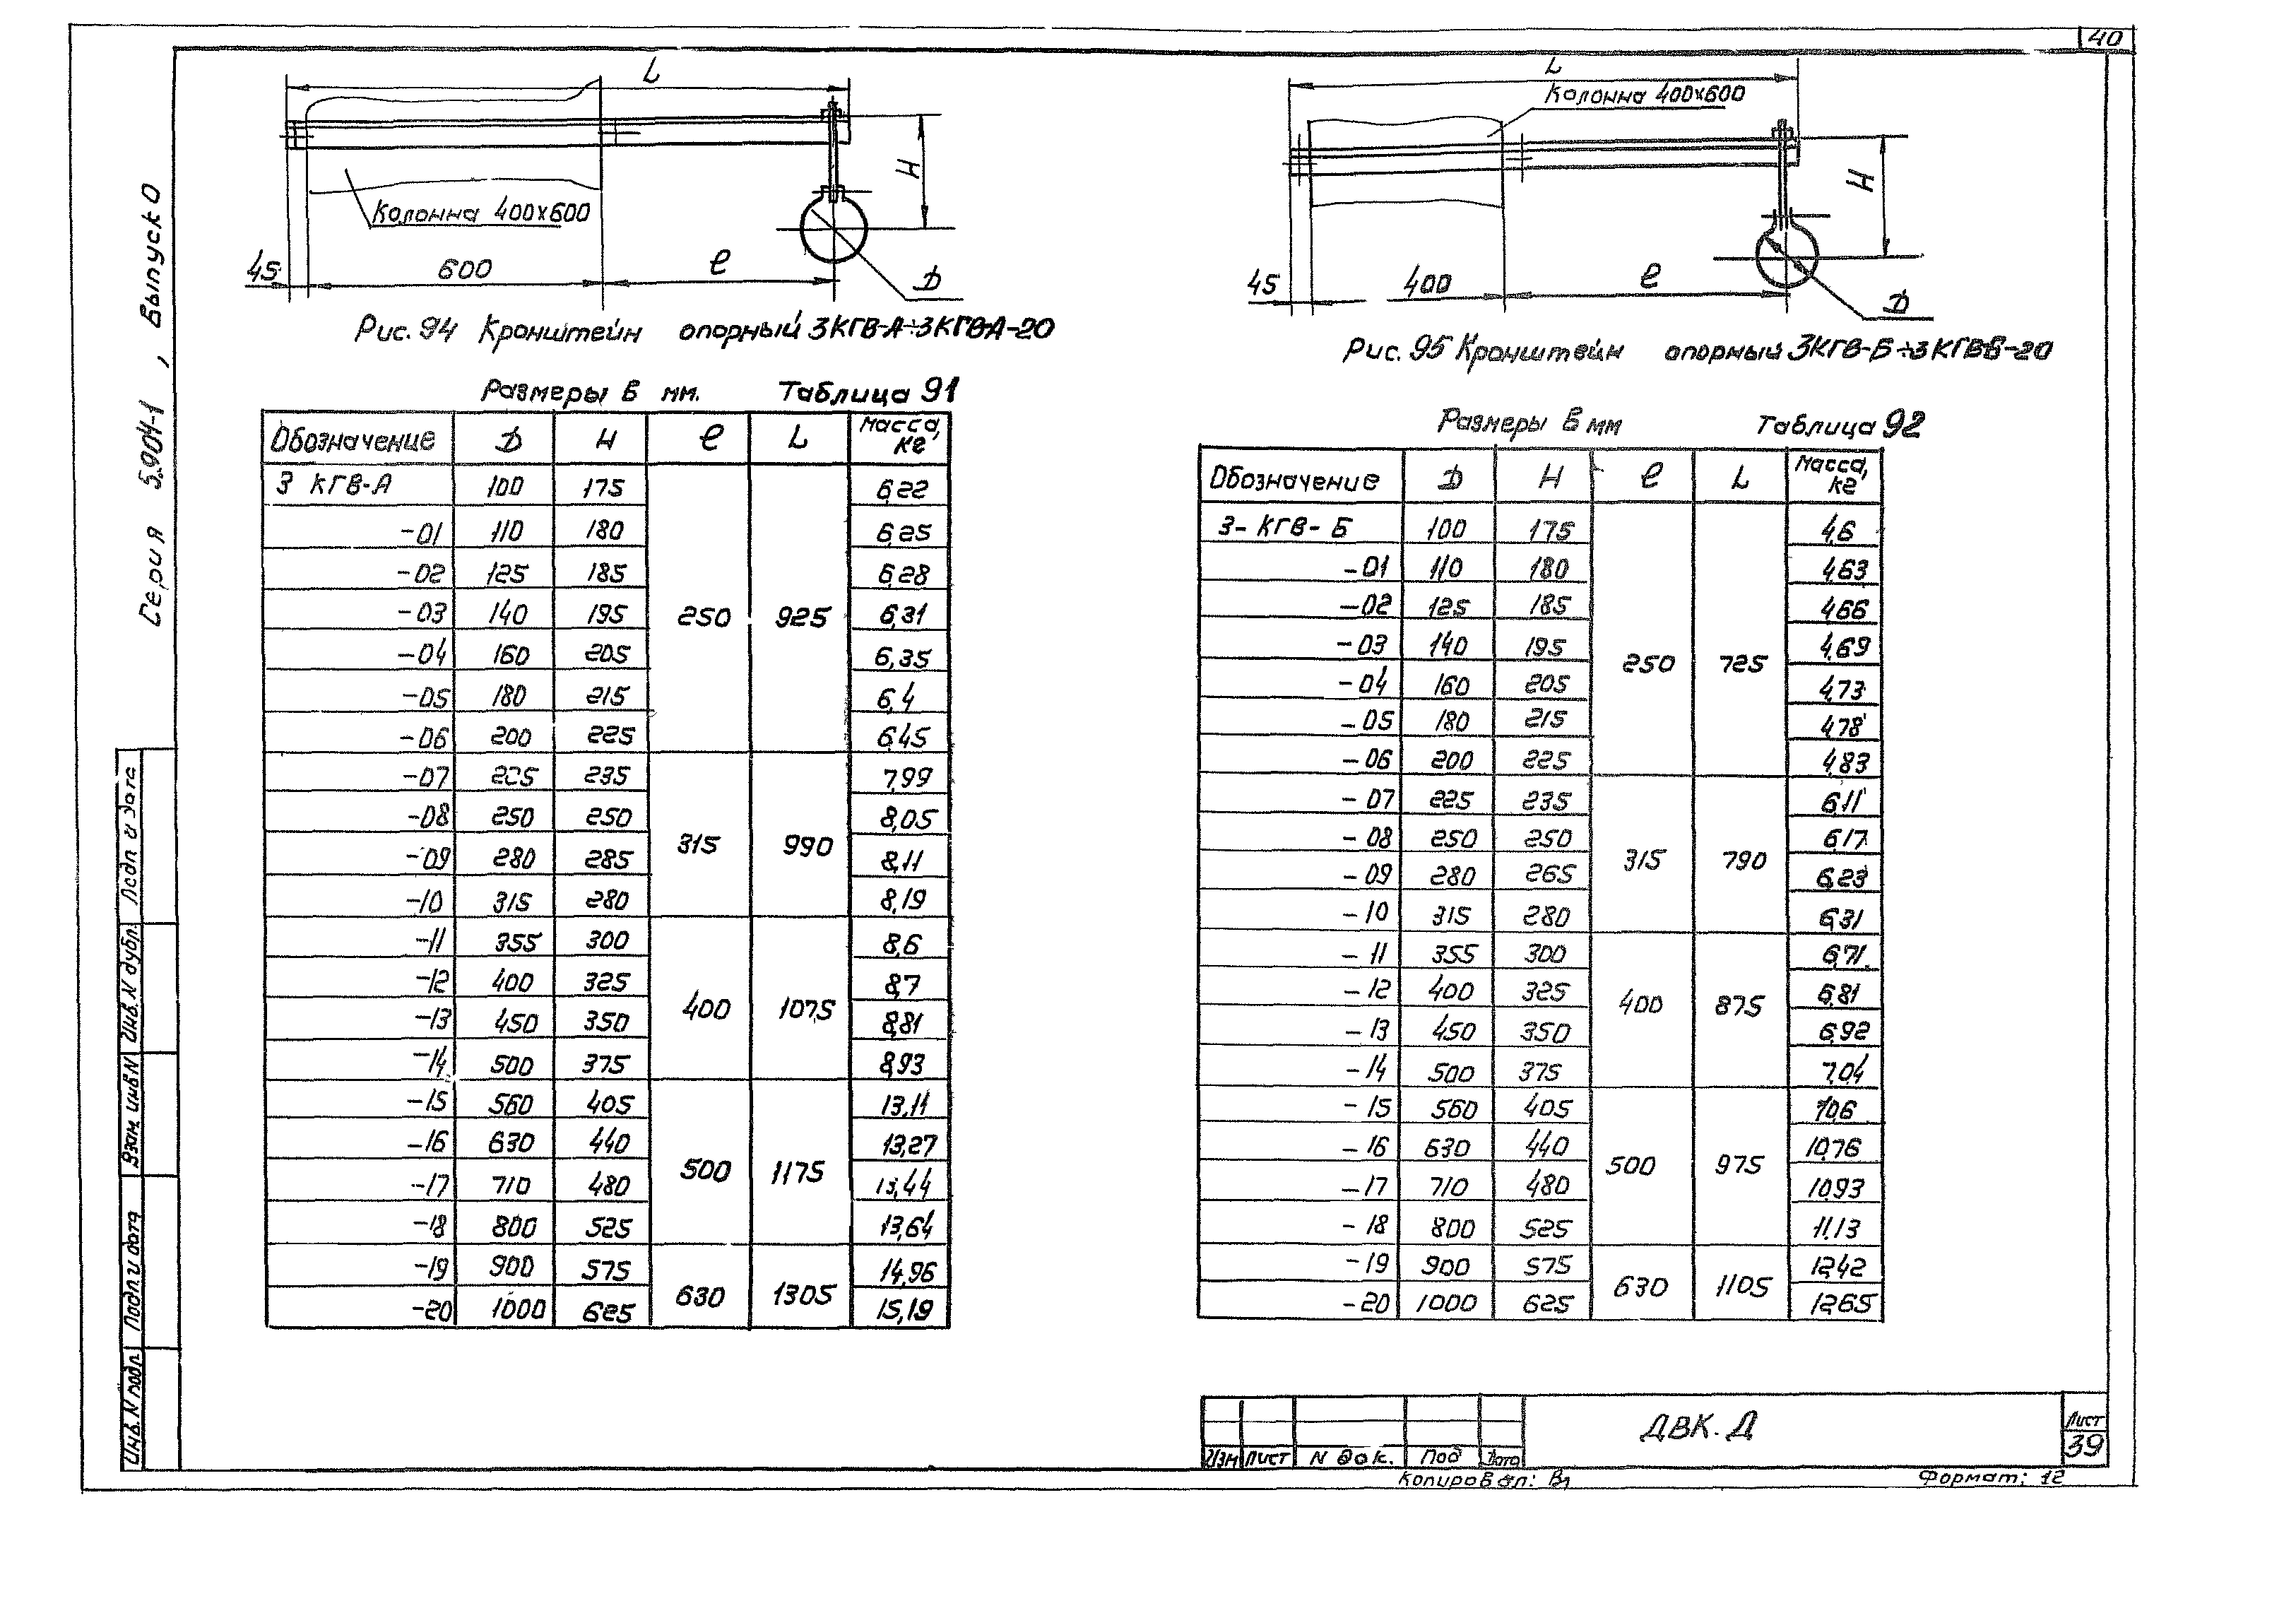 40
Серия 5.904-1 , Выпуск 0
L
H
Колонна 400х600
45 600 ℓ D
Рис. 94 Кронштейн опорный 3КГВ-А÷3КГВ-А-20
Размеры в мм. Таблица 91
Обозначение D H ℓ L Масса, кг
3 КГВ-А 100 175 250 925 6,22
-01 110 180 6,25
-02 125 185 6,28
-03 140 195 6,31
-04 160 205 6,35
-05 180 215 6,4
-06 200 225 6,45
-07 225 235 315 990 7,99
-08 250 250 8,05
-09 280 285 8,11
-10 315 280 8,19
-11 355 300 400 1075 8,6
-12 400 325 8,7
-13 450 350 8,81
-14 500 375 8,93
-15 560 405 500 1175 13,11
-16 630 440 13,27
-17 710 480 13,44
-18 800 525 13,64
-19 900 575 630 1305 14,96
-20 1000 625 15,19
L
Колонна 400х600
H
45 400 ℓ D
Рис. 95 Кронштейн опорный 3КГВ-Б÷3КГВ-Б-20
Размеры в мм Таблица 92
Обозначение D H ℓ L Масса, кг
3-КГВ-Б 100 175 250 725 4,6
-01 110 180 4,63
-02 125 185 4,66
-03 140 195 4,69
-04 160 205 4,73
-05 180 215 4,78
-06 200 225 4,83
-07 225 235 315 790 6,11
-08 250 250 6,17
-09 280 265 6,23
-10 315 280 6,31
-11 355 300 400 875 6,71
-12 400 325 6,81
-13 450 350 6,92
-14 500 375 7,04
-15 560 405 500 975 10,6
-16 630 440 10,76
-17 710 480 10,93
-18 800 525 11,13
-19 900 575 630 1105 12,42
-20 1000 625 12,65
Инв. N подл.
Подп. и дата
Взам. инв N
Инв. N дубл.
Подп и дата
Изм Лист N док. Под Дата
ДВК. Д
Лист
39
Копировал: Вл
Формат: 12